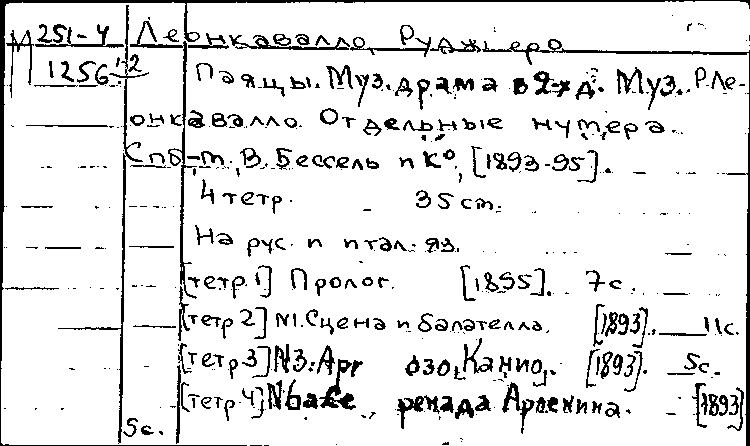 М 251-4 Леонкавалло, Руджиеро
1256 1-2 Паяцы. Муз. драма в 2-х д. Муз. Р. Ле-
онкавалло. Отдельные нумера.
Спб-т, В. Бессель и К°, [1893-95].
4 тетр. - 35 cm.
На рус. и итал. яз.
[тетр. 1] Пролог. [1895]. 7 с.
[тетр 2] N1. Сцена и балателла. [1893]. 11 с.
[тетр. 3] N3. Ариозо „Канио„. [1893]. 5 с.
[тетр. 4] N6 Арлекина. - [1893]
5 с.